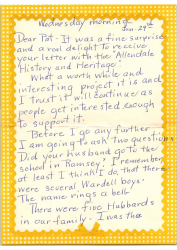 Wednesday morning
Jan. 29th
Dear Pat. It was a fine surprise
and a real delight to receive
your letter with the "Allendale
History and Heritage".
What a worth while and
interesting project it is and
I trust it will continue as
people get interested enough
to support it.
Before I go any further
I am going to ask two questions
Did your husband go to the
school in Ramsey? I remember,
at least I think I do, that there
were several Wardell boys.
The name rings a bell.
There were five Hubbards
in our family. I was the